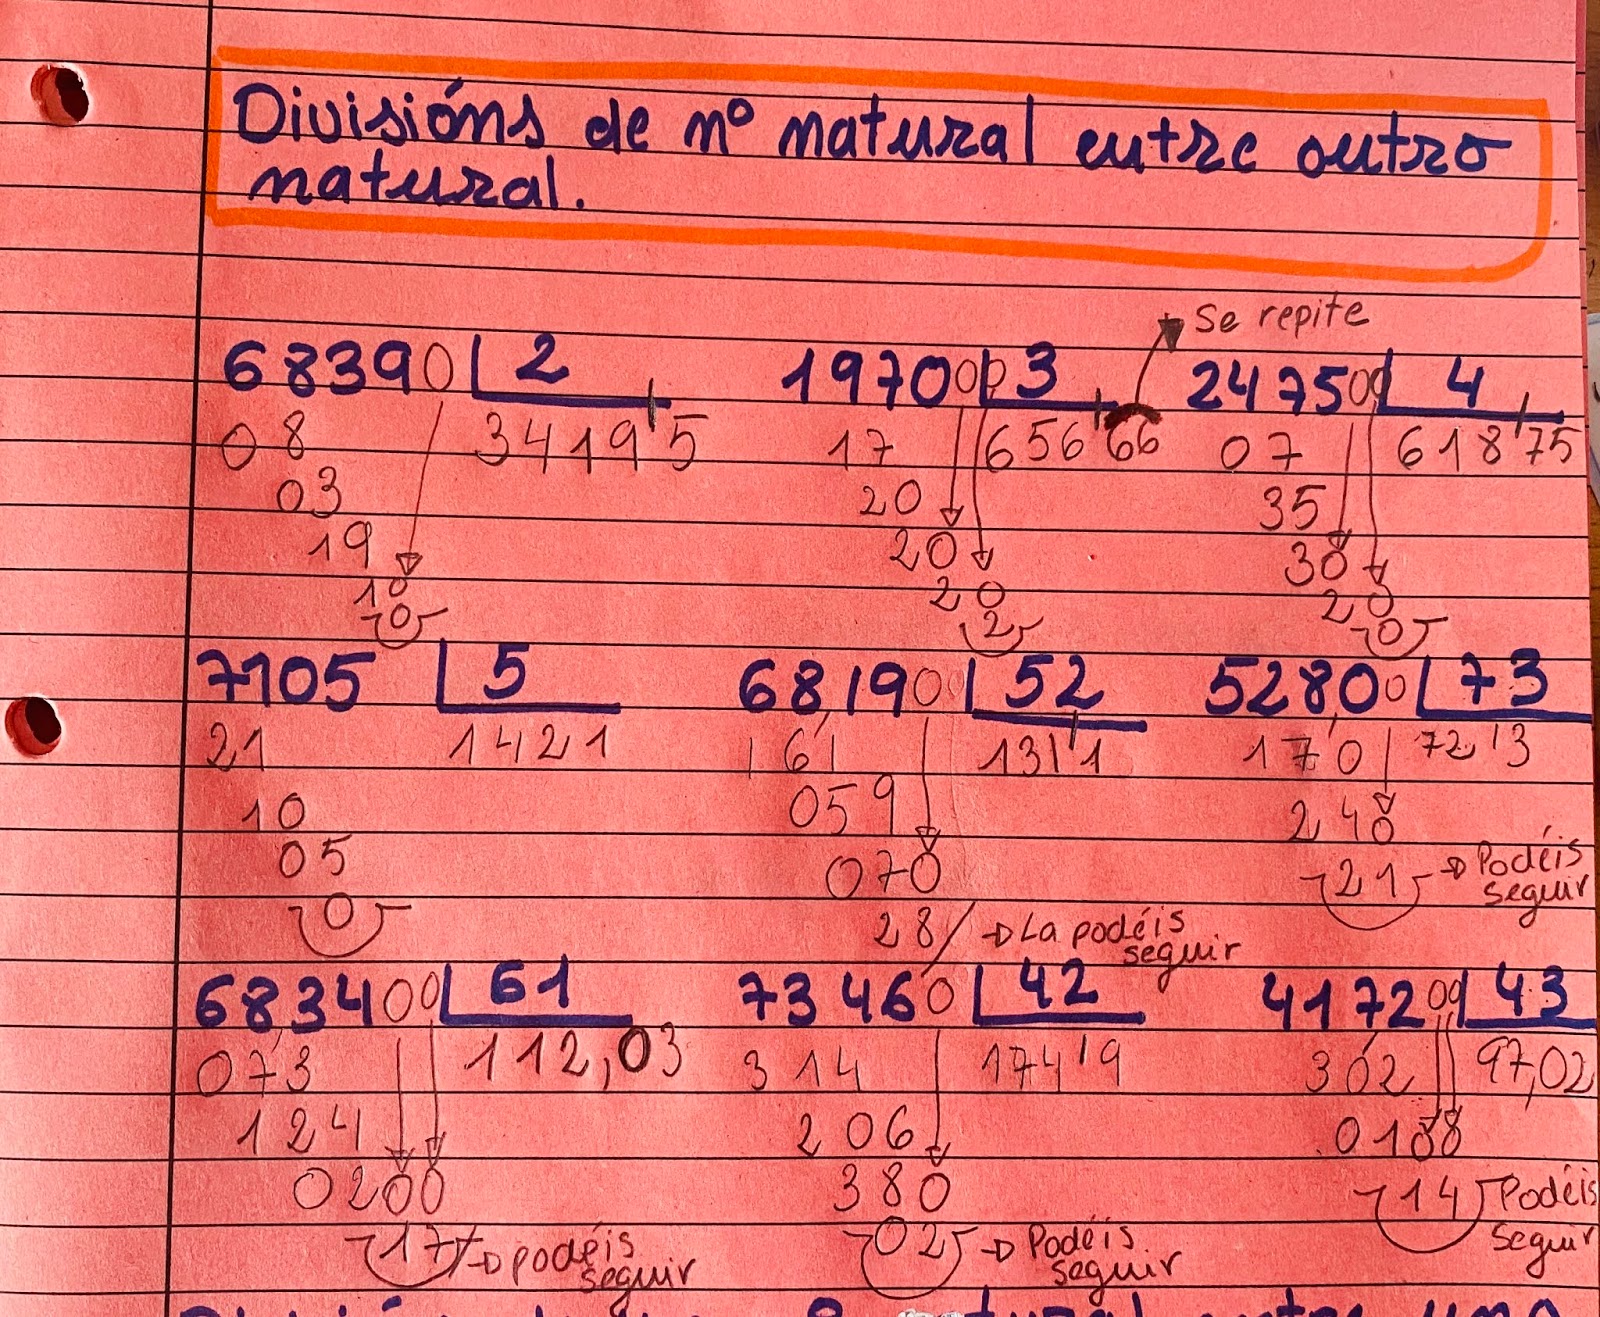 Divisións de nº natural entre outro
natural.
Se repite
68390 2
08 3419'5
03
19
10
0
197000 3
17 656'66
20
20
20
2
247500 4
07 618'75
35
30
20
0
7105 5
21 1421
10
05
0
681900 52
161 131'1
059
070
28 La podéis
seguir
52800 73
170 72'3
240
21 Podéis
seguir
683400 61
073 112,03
124
0200
17 podéis
seguir
73460 42
314 174'9
206
380
02 Podéis
seguir
417200 43
302 97,02
0100
14 Podéis
seguir